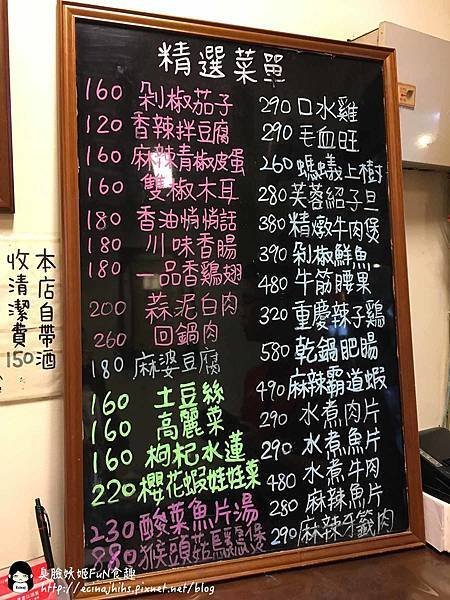 精選菜單
160 剁椒茄子
120 香辣拌豆腐
160 麻辣青椒皮蛋
160 雙椒木耳
180 香油悄悄話
180 川味香腸
180 一品香雞翅
200 蒜泥白肉
260 回鍋肉
180 麻婆豆腐
160 土豆絲
160 高麗菜
160 枸杞水蓮
220 櫻花蝦娃娃菜
230 酸菜魚片湯
880 猴頭菇烏骨雞煲
290 口水雞
290 毛血旺
260 螞蟻上樹
280 芙蓉紹子旦
380 精燉牛肉煲
390 剁椒鮮魚
480 牛筋腰果
320 重慶辣子雞
580 乾鍋肥腸
490 麻辣霸道蝦
290 水煮肉片
290 水煮魚片
480 水煮牛肉
280 麻辣魚片
290 麻辣牙籤肉
本店自帶酒
收清潔費150
臭臉妖姬FuN食趣
http://ecinajhihs.pixnet.net/blog